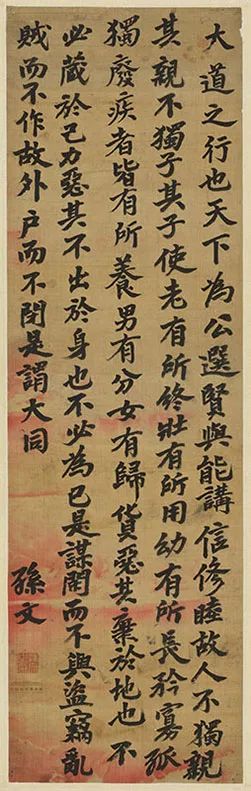 大道之行也天下為公選賢與能講信修睦故人不獨親
其親不獨子其子使老有所終壯有所用幼有所長矜寡孤
獨廢疾者皆有所養男有分女有歸貨惡其棄於地也不
必藏於己力惡其不出於身也不必為己是謀閉而不興盜竊亂
賊而不作故外戶而不閉是謂大同
孫文